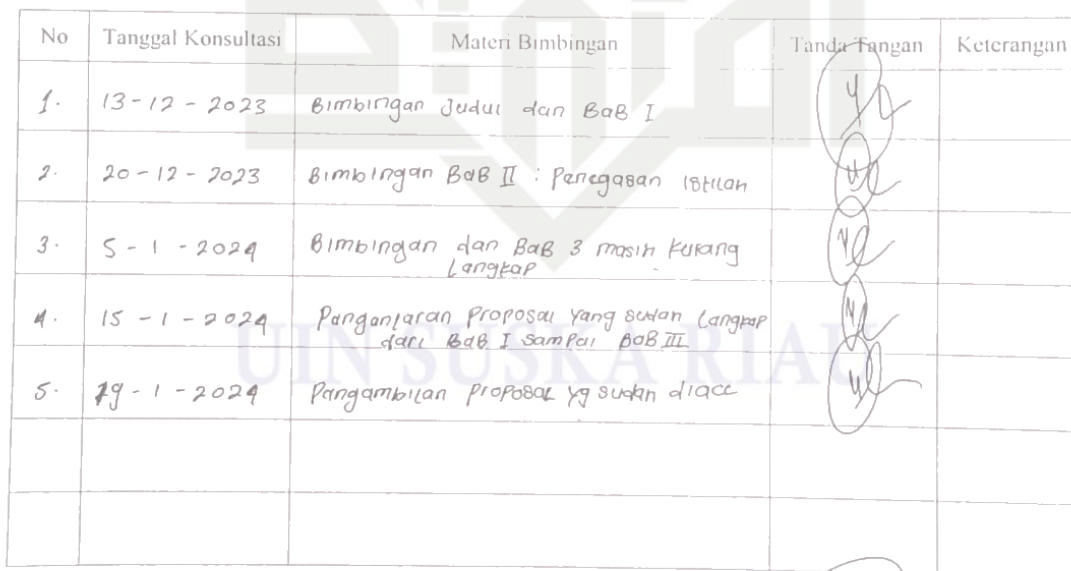 No Tanggal Konsultasi Materi Bimbingan Tanda Tangan Keterangan
1. 13-12-2023 Bimbingan Judul dan BaB I
2. 20-12-2023 Bimbingan BaB II : Penegasan istilah
3. 5-1-2024 Bimbingan dan BaB 3 masih kurang
Langkap
4. 15-1-2024 Pangantaran Proposal yang sudah Langkap
dari BaB I sampai BaB III
5. 19-1-2024 Pangambilan proposal yg sudah diacc
UIN SUSKA RIAU